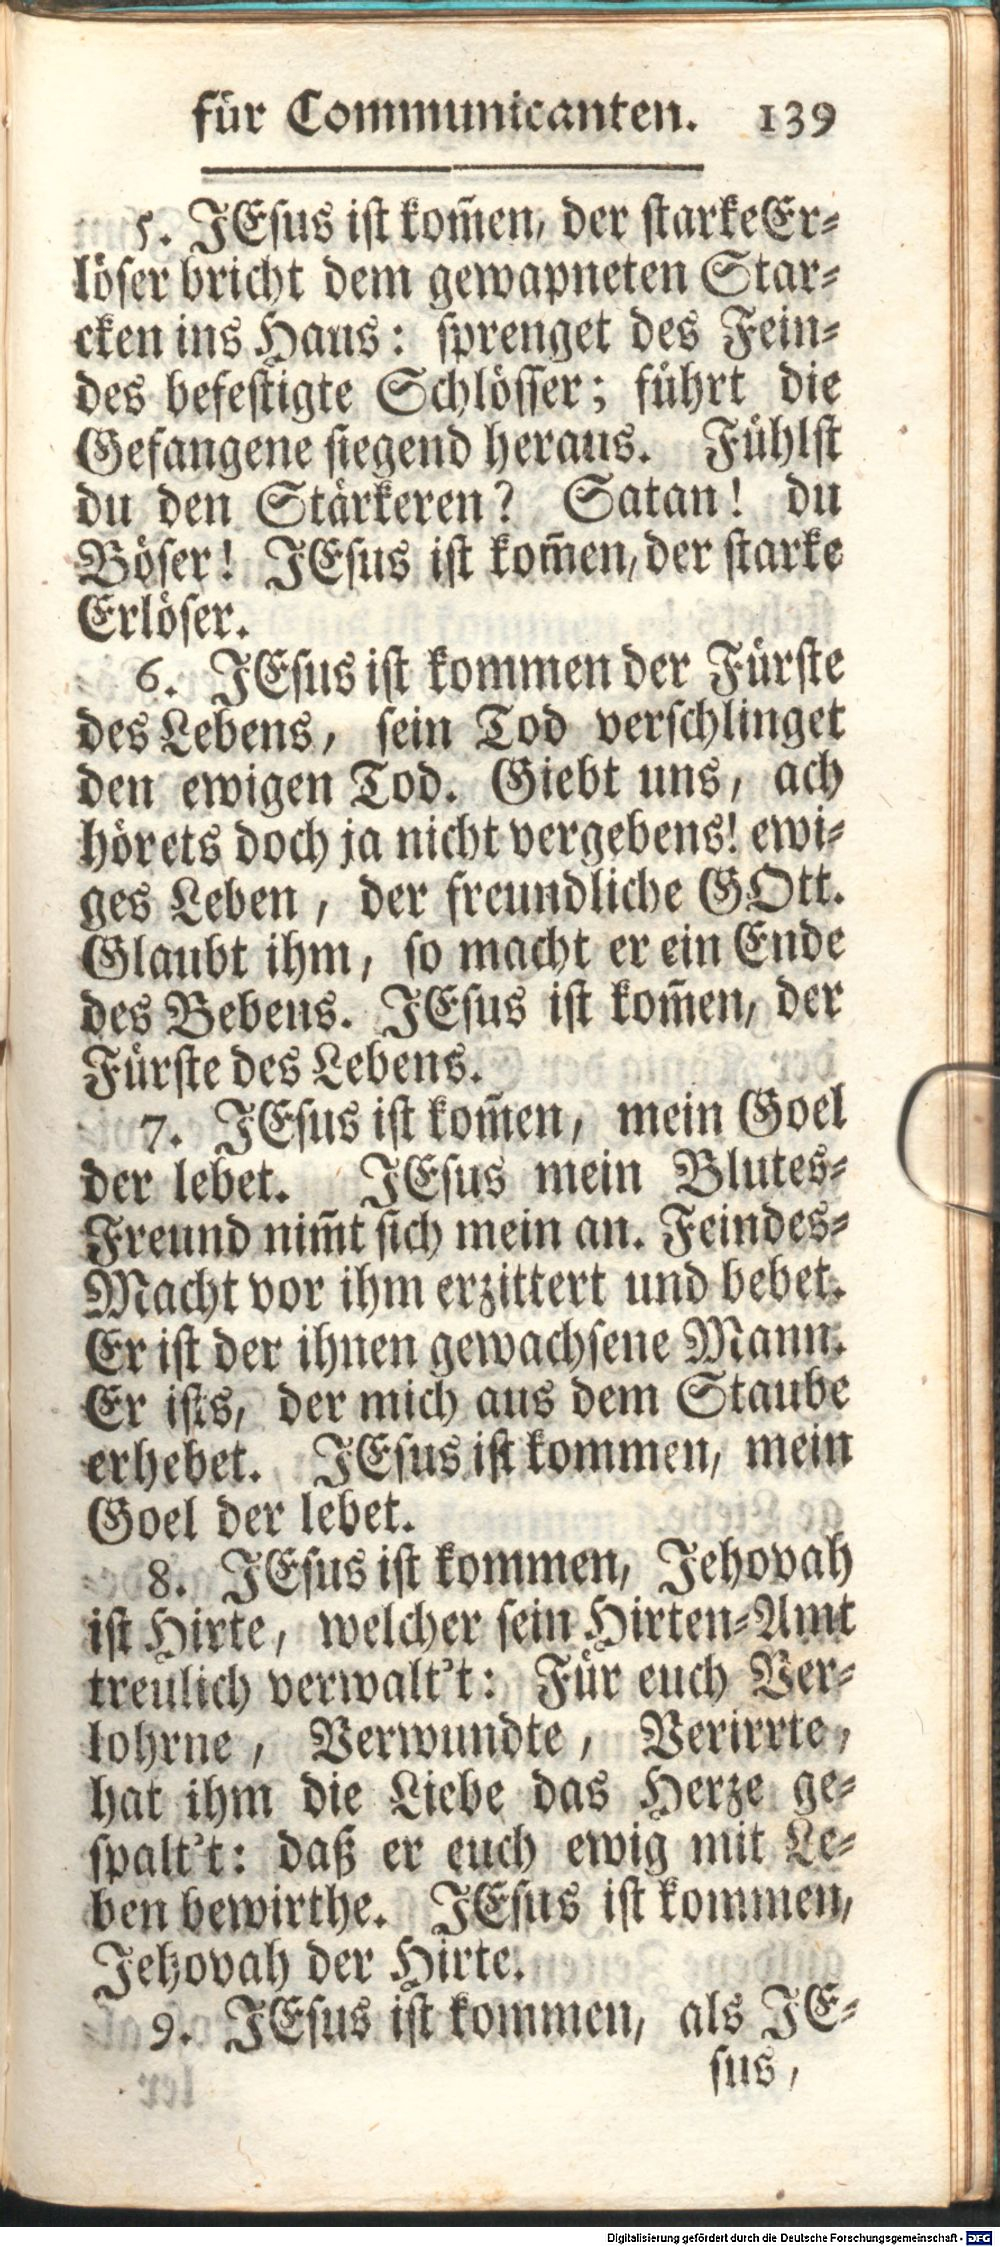 für Communicanten. 139
5. JEsus ist kom̃en, der starke Er-
löser bricht dem gewapneten Star-
cken ins Haus: sprenget des Fein-
des befestigte Schlösser; führt die
Gefangene siegend heraus. Fühlst
du den Stärkeren? Satan! du
Böser! JEsus ist kom̃en, der starke
Erlöser.
6. JEsus ist kommen der Fürste
des Lebens, sein Tod verschlinget
den ewigen Tod. Giebt uns, ach
hörets doch ja nicht vergebens! ewi-
ges Leben, der freundliche GOtt.
Glaubt ihm, so macht er ein Ende
des Bebens. JEsus ist kom̃en, der
Fürste des Lebens.
7. JEsus ist kom̃en, mein Goel
der lebet. JEsus mein Blutes-
Freund nim̃t sich mein an. Feindes-
Macht vor ihm erzittert und bebet.
Er ist der ihnen gewachsene Mann.
Er ists, der mich aus dem Staube
erhebet. JEsus ist kommen, mein
Goel der lebet.
8. JEsus ist kommen, Jehovah
ist Hirte, welcher sein Hirten-Amt
treulich verwalt't: Für euch Ver-
lohrne, Verwundte, Verirrte,
hat ihm die Liebe das Herze ge-
spalt't: daß er euch ewig mit Le-
ben bewirthe. JEsus ist kommen,
Jehovah der Hirte.
9. JEsus ist kommen, als JE-
sus,
Digitalisierung gefördert durch die Deutsche Forschungsgemeinschaft - DFG